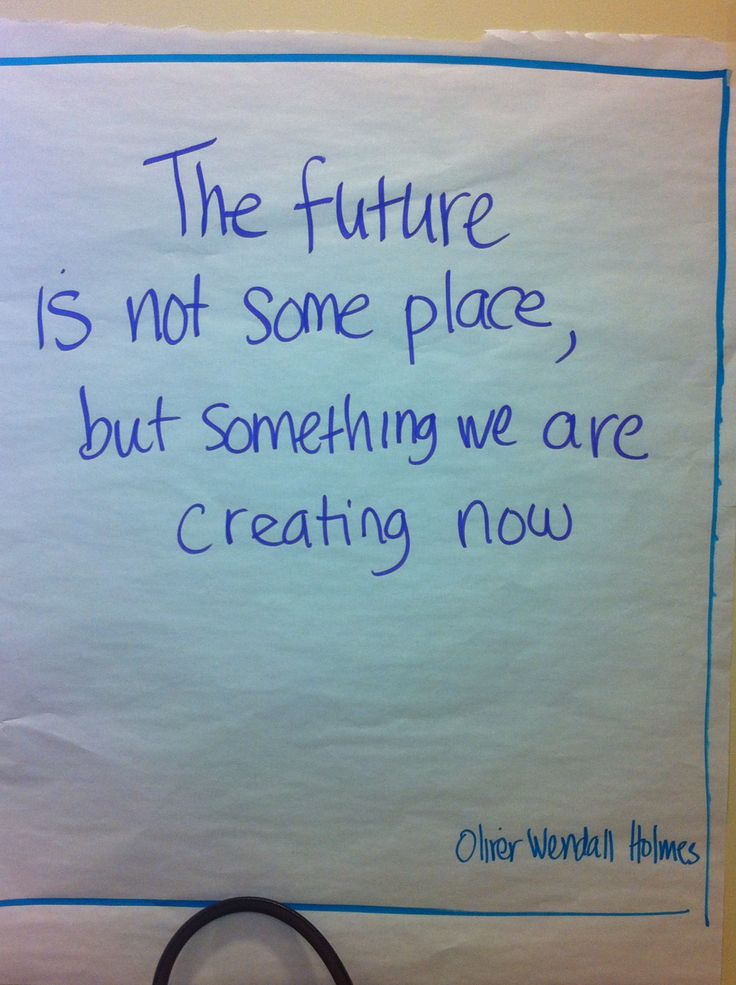 The future
is not some place,
but something we are
creating now
Oliver Wendall Holmes